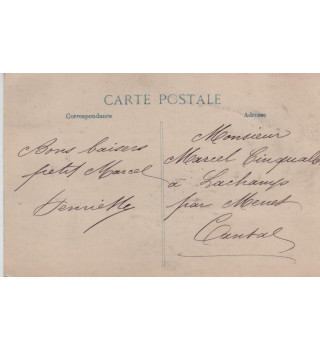 CARTE POSTALE
Correspondance
Adresse
Bons baisers
petit Marcel
Henriette
Monsieur
Marcel Cinqualb
à Lachamps
par Menet
Cantal